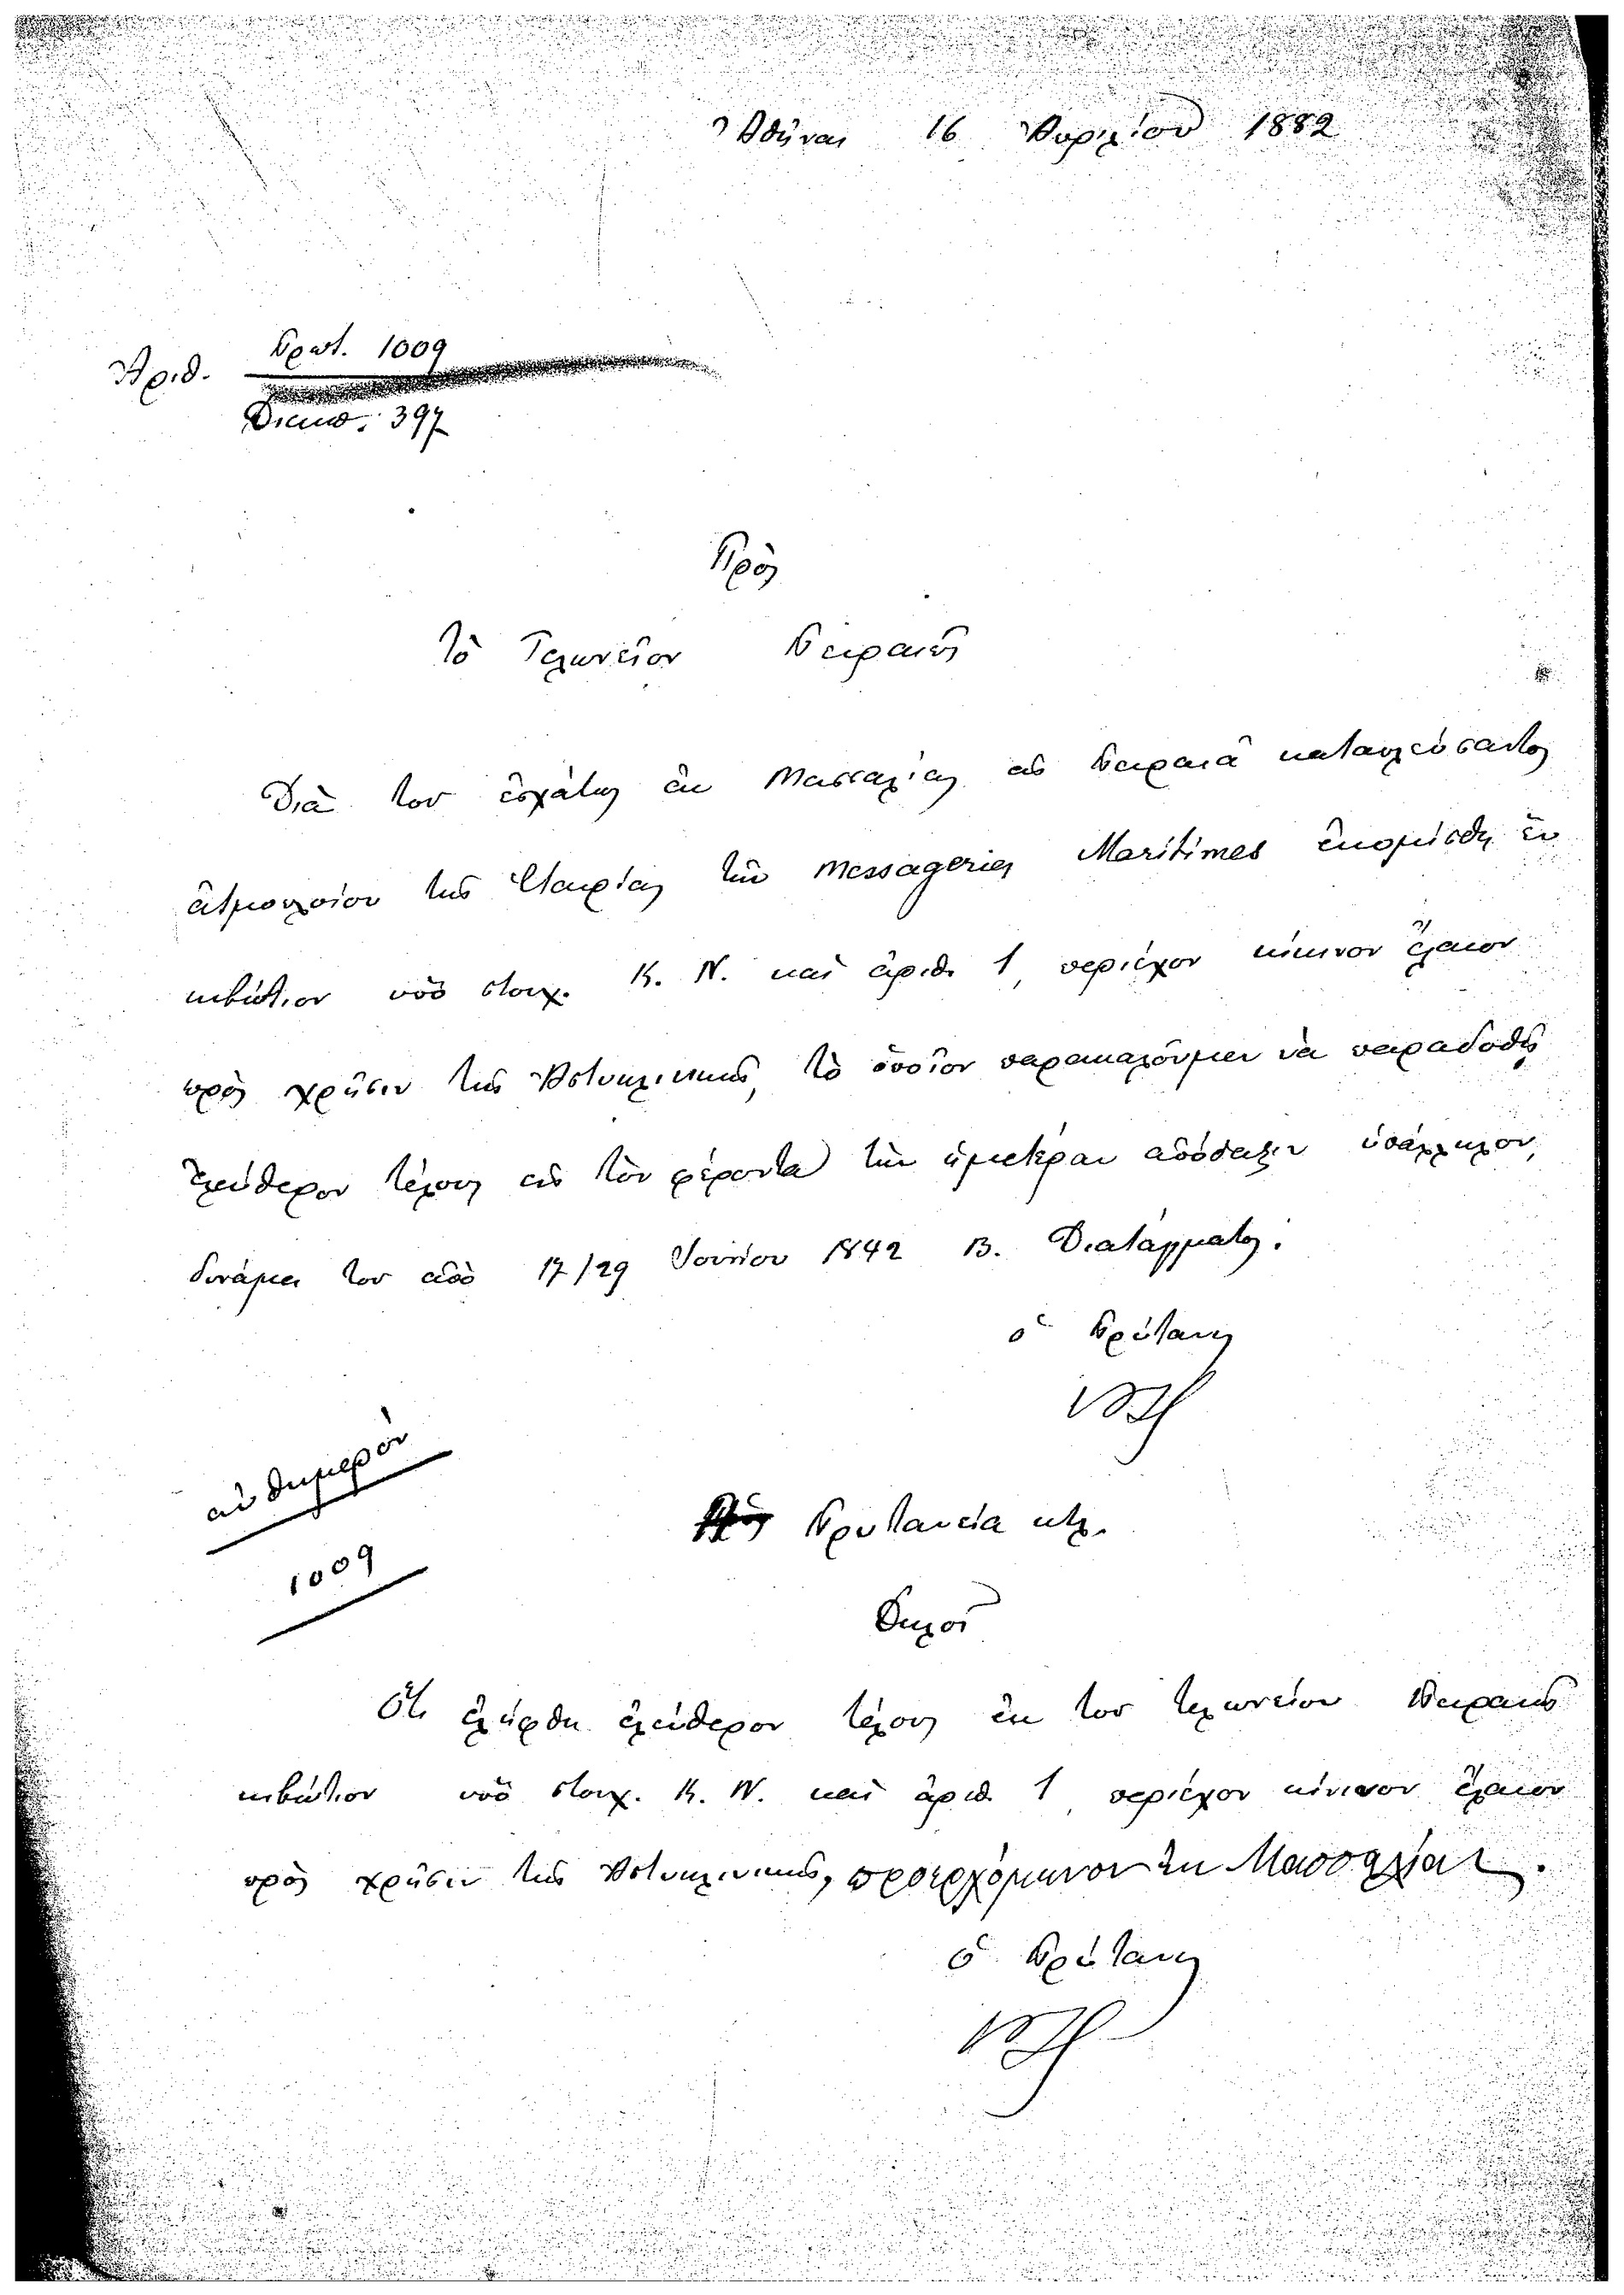 Ἀθῆναι 16 Ἀπριλίου 1882
Ἀριθ. Πρωτ. 1009
Διεκπ. 397
Πρὸς
Τὸ Τελωνεῖον Πειραιῶς
Διὰ τοῦ ἐσχάτως ἐκ Μασσαλίας εἰς Πειραιᾶ καταπλεύσαντος
ἀτμοπλοίου τῆς Ἑταιρίας τῶν Messageries Maritimes ἐκομίσθη ἓν
κιβώτιον ὑπὸ στοιχ. Κ. Ν. καὶ ἀριθ. 1, περιέχον κίκινον ἔλαιον
πρὸς χρῆσιν τῆς Ἀστυκλινικῆς, τὸ ὁποῖον παρακαλοῦμεν νὰ παραδοθῇ
ἐλεύθερον τέλους εἰς τὸν φέροντα τὴν ἡμετέραν ἀπόδειξιν ὑπάλληλον,
δυνάμει τοῦ ἀπὸ 17/29 Ἰουνίου 1842 Β. Διατάγματος.
ὁ Πρύτανις
αὐθημερόν
1009
Πρυτανεία κτλ.
Δηλοῖ
Ὅτι ἐλήφθη ἐλεύθερον τέλους ἐκ τοῦ τελωνείου Πειραιῶς
κιβώτιον ὑπὸ στοιχ. Κ. Ν. καὶ ἀριθ. 1, περιέχον κίκινον ἔλαιον
πρὸς χρῆσιν τῆς Ἀστυκλινικῆς, προερχόμενον ἐκ Μασσαλίας.
ὁ Πρύτανις